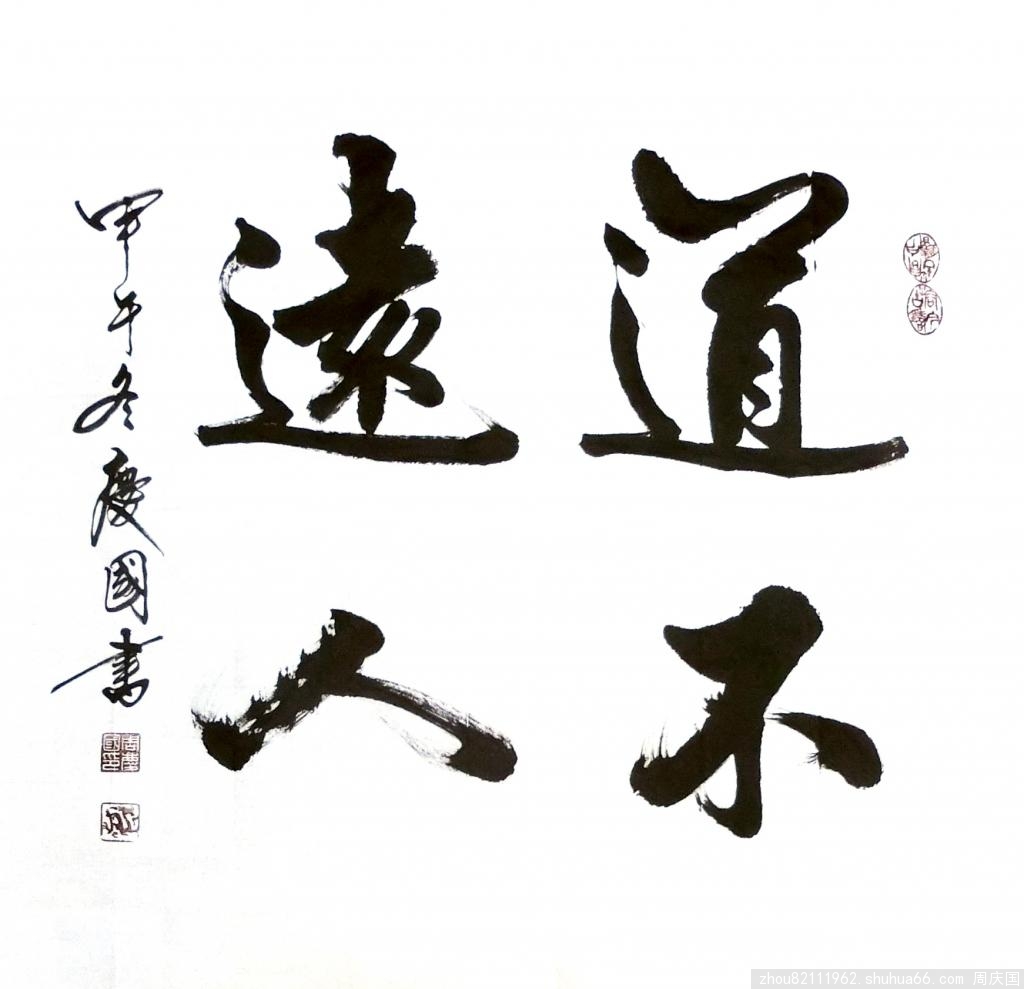 道不
遠人
甲午冬慶國書
zhou82111962.shuhua66.com 周庆国